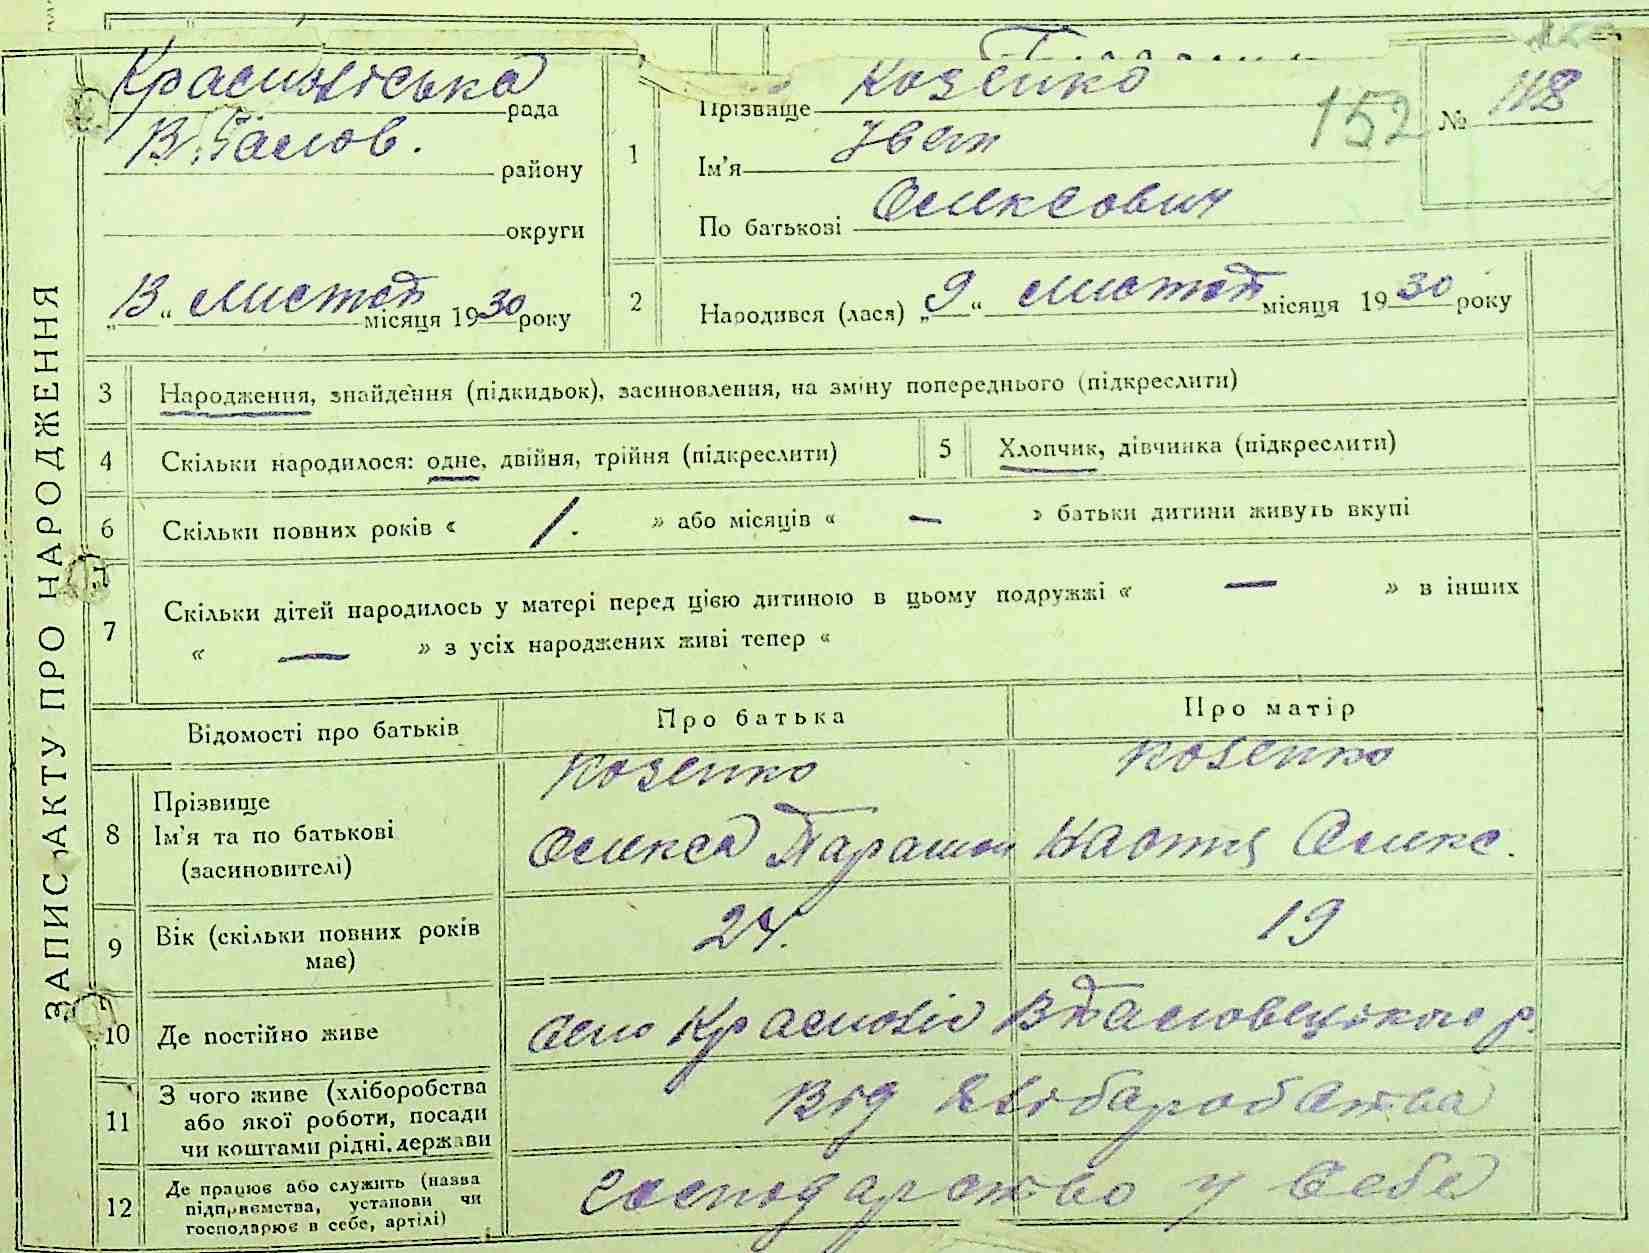 ЗАПИС АКТУ ПРО НАРОДЖЕННЯ
Краснолiська рада
району
округи
„13“ листоп місяця 1930 року
1
Прізвище Козенко
Ім'я Іван
По батькові Олексович
152
№ 118
2
Народився (лася) „9“ листоп місяця 1930 року
3 Народження, знайдення (підкидьок), засиновлення, на зміну попереднього (підкреслити)
4 Скільки народилося: одне, двійня, трійня (підкреслити)
5 Хлопчик, дівчинка (підкреслити)
6 Скільки повних років « 1. » або місяців « — » батьки дитини живуть вкупі
7 Скільки дітей народилось у матері перед цією дитиною в цьому подружжі « — » в інших
« — » з усіх народжених живі тепер «
Відомості про батьків
Про батька
Про матір
8
Прізвище
Ім'я та по батькові
(засиновителі)
Козенко
Олекса Парамон
Козенко
Настя Олекс.
9 Вік (скільки повних років
має)
24.
19
10 Де постійно живе
Село Краснолiс
11
З чого живе (хліборобства
або якої роботи, посади
чи коштами рідні, держави
Від хлібаробства
12
Де працює або служить (назва
підприємства, установи чи
господарює в себе, артілі)
Господарство у себе